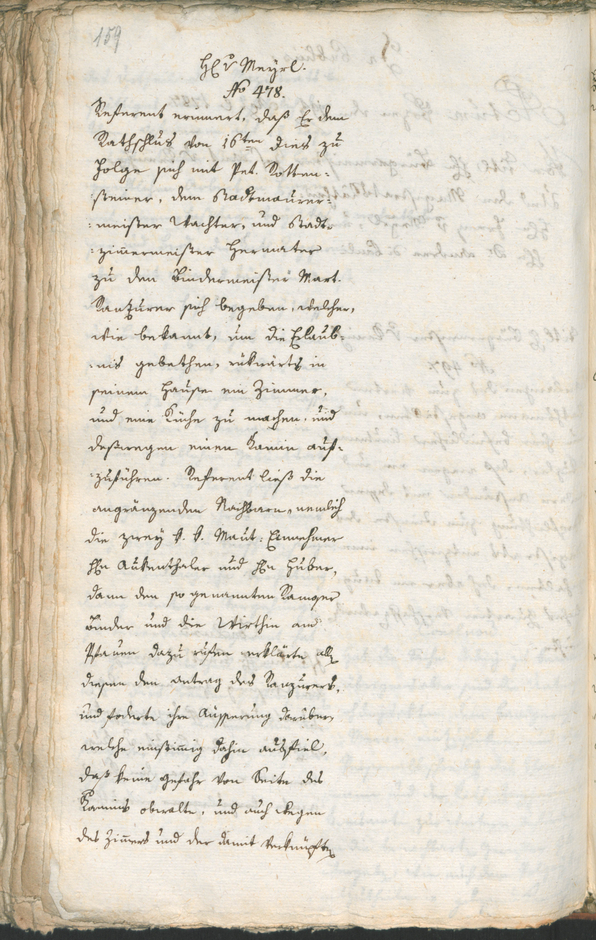 159
H: v Meyrl:
No 478.
Referent erinnert, daß Er dem
Rathschlus von 16ten dies zu
Folge sich mit Pet. Rotten-
steiner, dem Stadtmaurer-
meister Wachter, und Stadt-
zimmermeister Hermater
zu dem Bindermeister Mart.
Ranzurer sich begeben, welcher,
wie bekannt, um die Erlaub-
nis gebethen, rükwärts in
seinem Hause ein Zimmer,
und eine Küche zu machen, und
deßwegen einen Kamin auf-
zuführen. Referent ließ die
angränzenden Nachbarn, nemlich
die zwey k. k. Maut-Einnehmer
Hn Aukenthaler und Hn Huber,
dann den so genannten Ramoser
Binder und die Wirthin am
Pfauen dazu rufen erklärte all
diesen den Antrag des Ranzurers,
und foderte ihre Äusserung darüber,
welche einstimig dahin ausfiel,
daß keine Gefahr von Seite des
Kamins obwalte, und auch wegen
des Zimers und der damit verknüpften